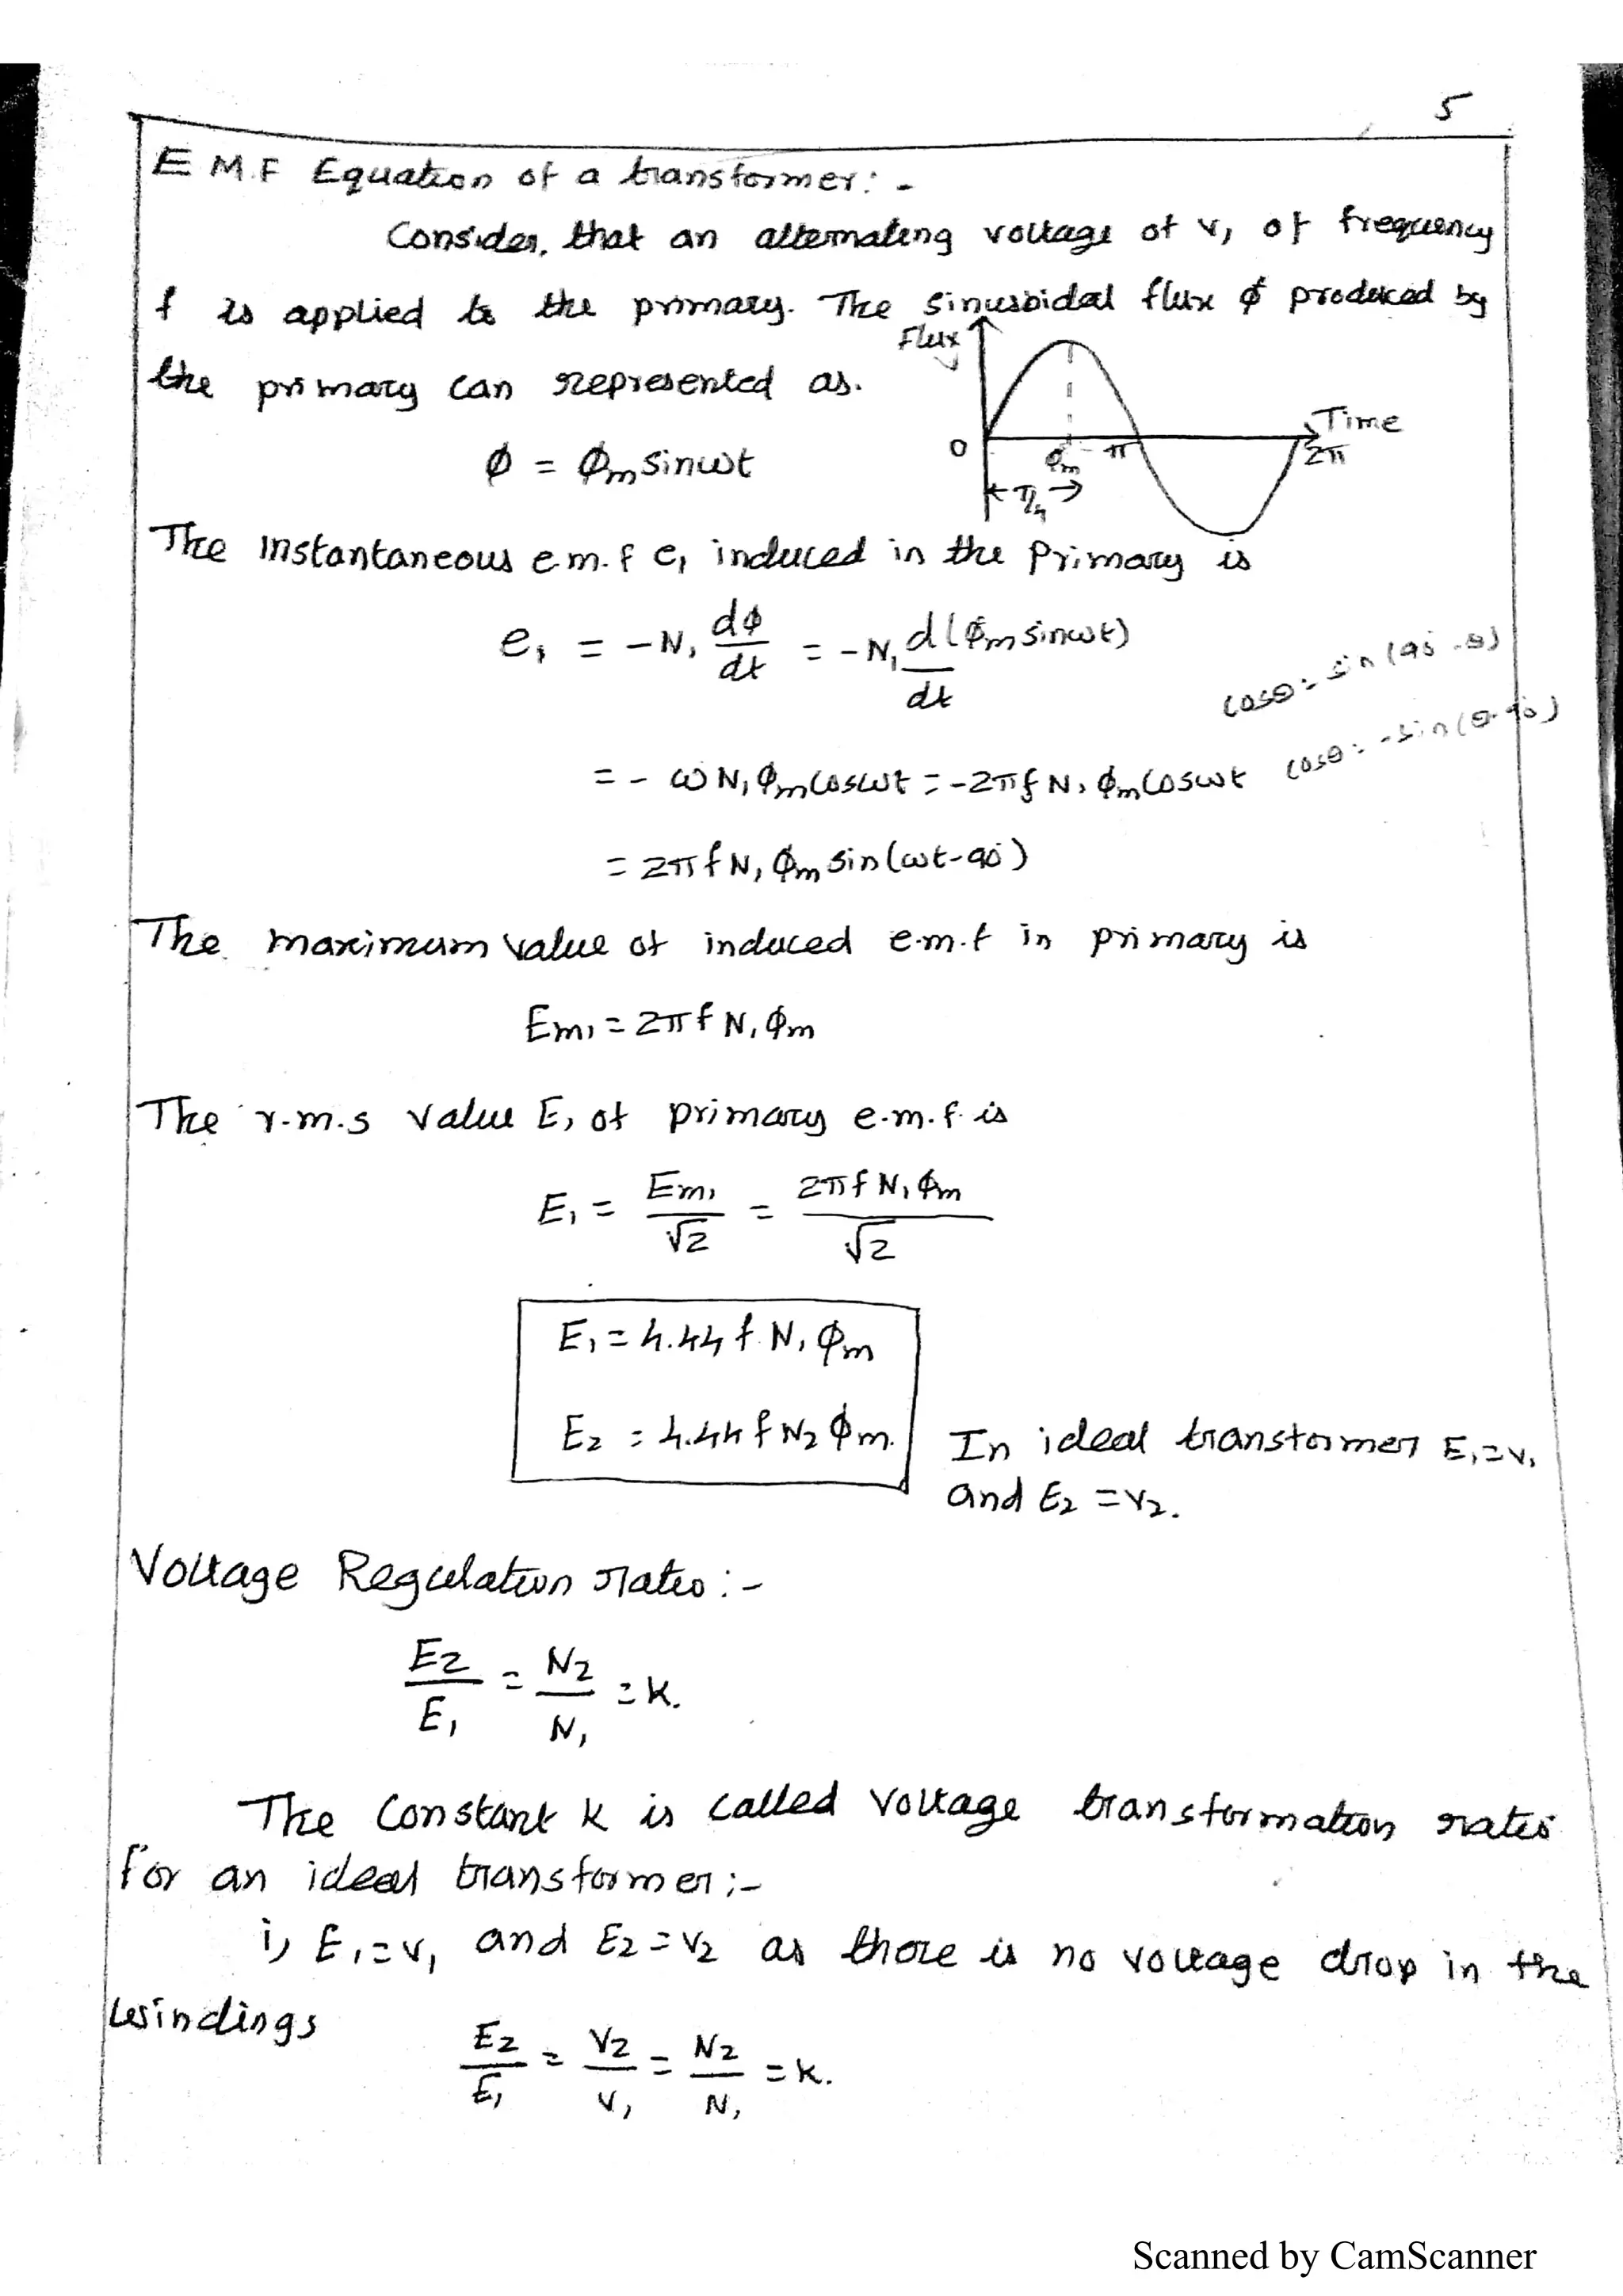 5
E M.F Equation of a transformer:-
Consider, that an alternating voltage of V₁ of frequency
f is applied to the primary. The sinusoidal flux ϕ produced by
the primary can represented as.
Flux
Time
0 ϕm π 2π
T/4
ϕ = ϕm sinωt
The Instantaneous e.m.f e₁ induced in the Primary is
e₁ = -N₁ dϕ/dt = -N₁ d(ϕm sinωt)/dt
cosθ = sin(90-θ)
cosθ = -sin(θ-90)
= - ωN₁ϕm cosωt = -2πf N₁ ϕm cosωt
= 2πf N₁ ϕm sin(ωt-90)
The maximum value of induced e.m.f in primary is
Em₁ = 2πf N₁ϕm
The r.m.s value E₁ of primary e.m.f. is
E₁ = Em₁/√2 = 2πf N₁ϕm/√2
E₁ = 4.44 f N₁ ϕm
E₂ = 4.44 f N₂ ϕm.
In ideal transformer E₁=V₁
and E₂ = V₂.
Voltage Regulation ratio:-
E₂/E₁ = N₂/N₁ = K.
The Constant K is called Voltage transformation ratio
For an ideal transformer:-
i) E₁=V₁ and E₂=V₂ as there is no voltage drop in the
windings
E₂/E₁ = V₂/V₁ = N₂/N₁ = K.
Scanned by CamScanner